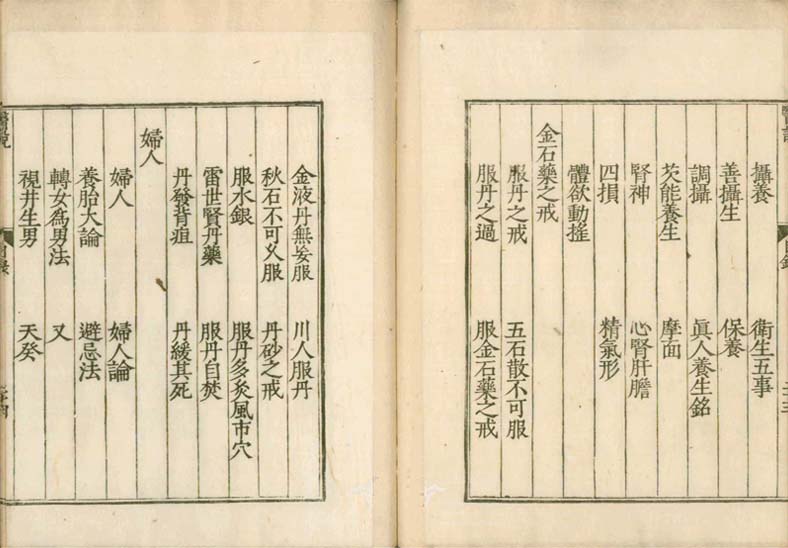 攝養 衛生五事
善攝生 保養
調攝 眞人養生銘
芡能養生 摩面
腎神 心腎肝膽
四損 精氣形
體欲動搖
金石藥之戒
服丹之戒 五石散不可服
服丹之過 服金石藥之戒
金液丹無妄服 川人服丹
秋石不可乆服 丹砂之戒
服水銀 服丹多灸風市穴
雷世賢丹藥 服丹自焚
丹發背疽 丹緩其死
婦人
婦人 婦人論
養胎大論 避忌法
轉女爲男法 又
視井生男 天癸